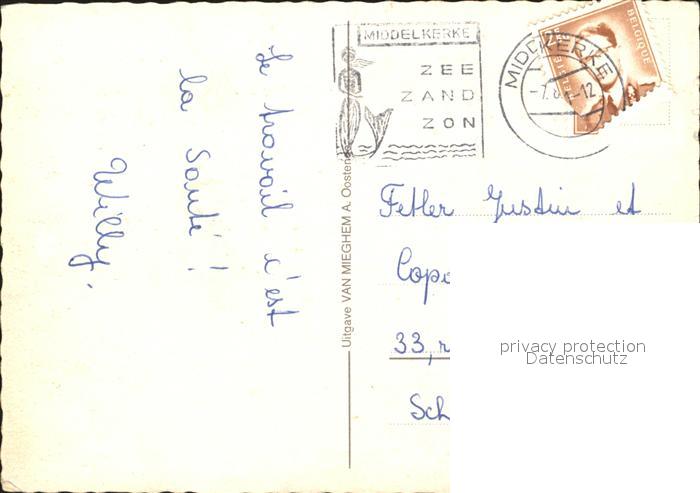 Le travail c'est
la Santé !
Willy.
Uitgave VAN MIEGHEM A. Oostende
MIDDELKERKE
ZEE
ZAND
ZON
MIDDELKERKE
-12
BELGIQUE
BELGIE
Fetler Justin et
33, r
Sch
privacy protection
Datenschutz